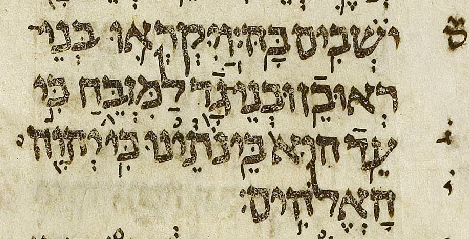 יֹשְׁבִים בָּהּ׃ וַיִּקְרְאוּ בְּנֵי
רְאוּבֵן וּבְנֵי גָד לַמִּזְבֵּחַ כִּי
עֵד הוּא בֵּינֹתֵינוּ כִּי יְהוָה
הָאֱלֹהִים׃